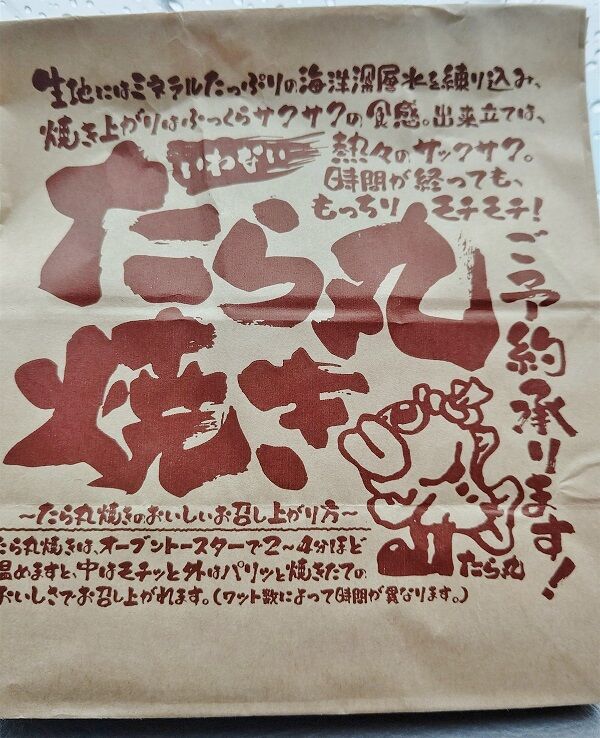 生地にはミネラルたっぷりの海洋深層水を練り込み、
焼き上がりはふっくらサクサクの食感。出来立ては、
熱々のサックサク。
時間が経っても、
もっちり モチモチ!
いわない
たら丸
焼き
ご予約承ります!
たら丸
~たら丸焼きのおいしいお召し上がり方~
たら丸焼きは、オーブントースターで2~4分ほど
温めますと、中はモチッと外はパリッと焼きたての
おいしさでお召し上がれます。(ワット数によって時間が異なります。)